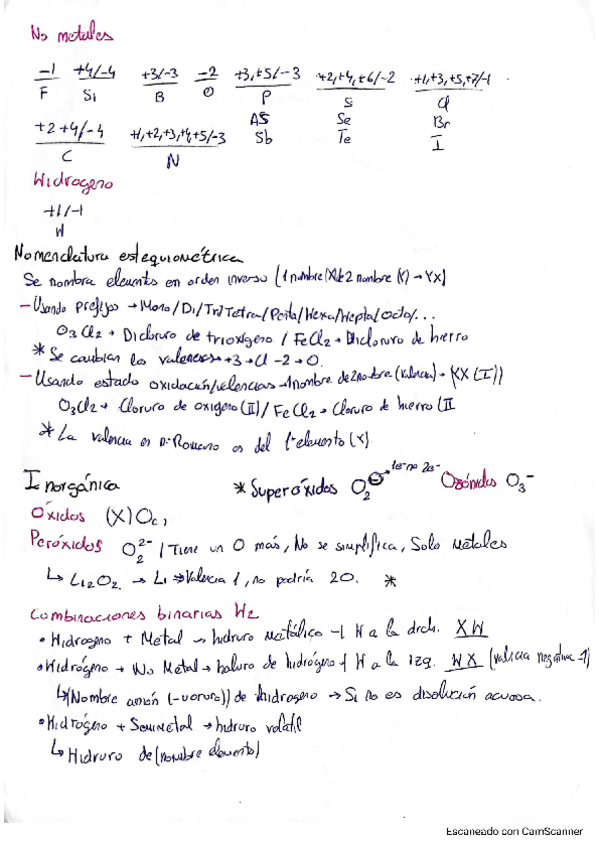 No metales
-1 +4/-4 +3/-3 -2 +3,+5/-3 +2,+4,+6/-2 +1,+3,+5,+7/-1
F Si B O P S Cl
+2 +4/-4 +1,+2,+3,+4,+5/-3 AS Se Br
C N Sb Te I
Hidrogeno
+1/-1
H
Nomenclatura estequiométrica
Se nombra elementos en orden inverso (1 nombre (X) 2 nombre (Y) → YX)
- Usando prefijos → Mono/Di/Tri/Tetra/Penta/Hexa/Hepta/Octo/...
O3Cl2 → Dicloruro de trioxígeno / FeCl2 → Dicloruro de hierro
* Se cambian las valencias → +3 → Cl -2 → O.
- Usando estado oxidación/valencias → 1nombre de 2nombre (valencia) → YX (I))
O3Cl2 → Cloruro de oxigeno (II) / FeCl2 → Cloruro de hierro (II
* La valencia es nº Romano es del 1º elemento (X)
Inorgánica * Superóxidos O2- Ozónidos O3-
Óxidos (X)O
Peróxidos O2 2- / Tiene un O más, No se simplifica, Solo metales
↳ Li2O2 → Li → Valencia 1, no podría 2O. *
Combinaciones binarias H2
• Hidrogeno + Metal → hidruro metálico -1 H a la drch. XH
• Hidrógeno + No Metal → haluro de hidrógeno H a la izq. HX (valencia negativa -1)
↳ (Nombre (-uro)) de hidrogeno → Si no es disolución acuosa.
• Hidrógeno + Semimetal → hidruro volatil
↳ Hidruro de (nombre elemento)
Escaneado con CamScanner